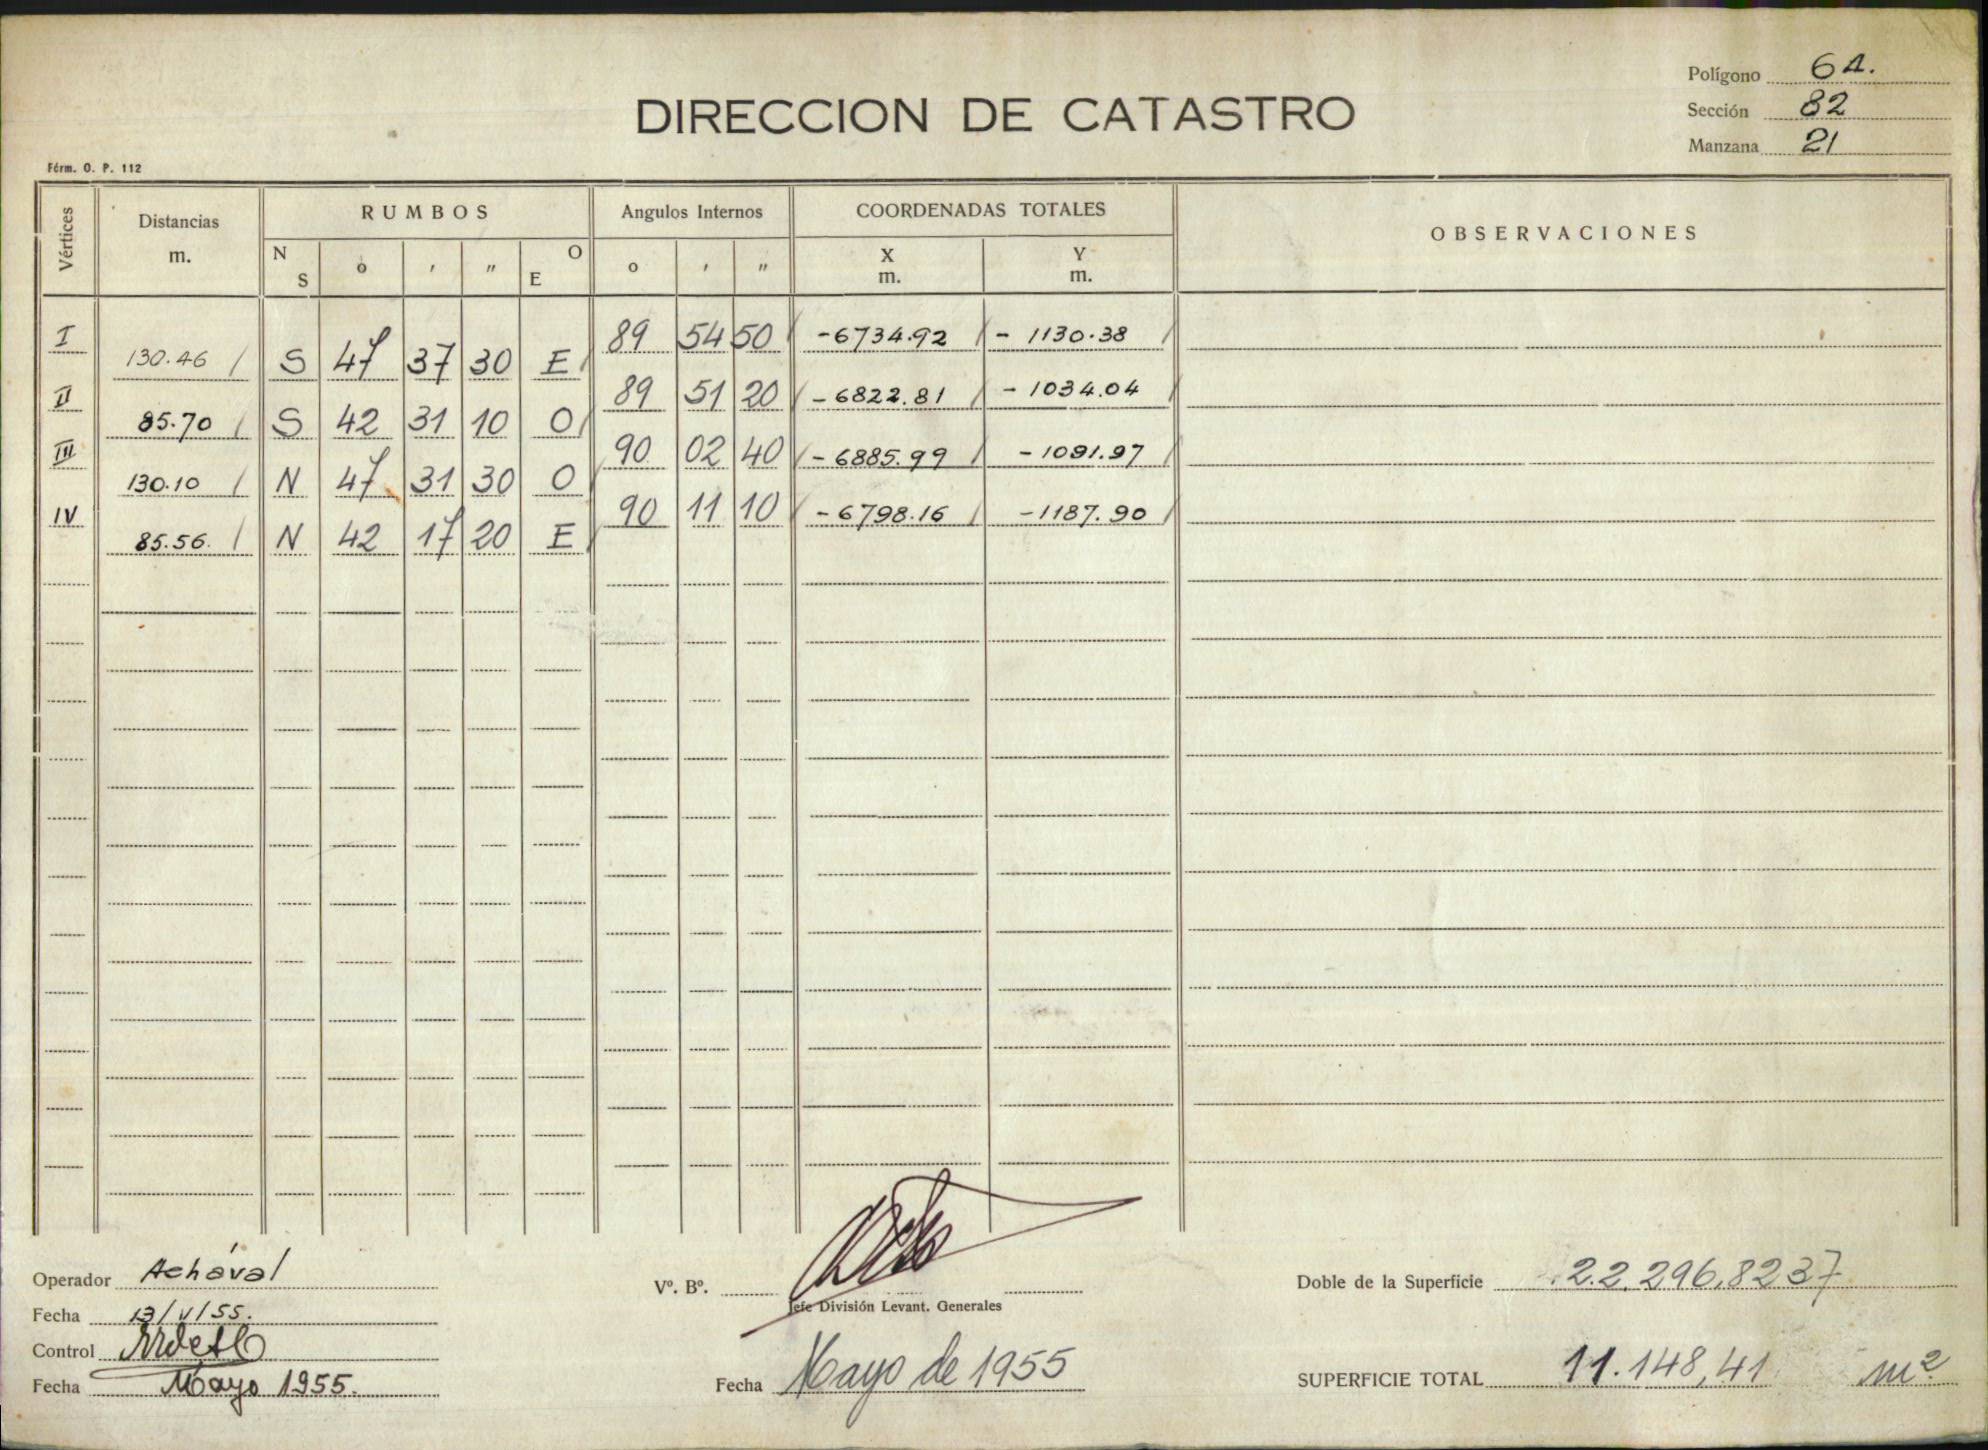 Polígono 64.
DIRECCION DE CATASTRO
Sección 82
Manzana 21
Fórm. O. P. 112
Vértices Distancias m. RUMBOS N S o ' " O E Angulos Internos o ' " COORDENADAS TOTALES X m. Y m. OBSERVACIONES
I 89 54 50 -6734.92 - 1130.38
130.46 S 47 37 30 E
II 89 51 20 -6822.81 - 1034.04
85.70 S 42 31 10 O
III 90 02 40 -6885.99 -1091.97
130.10 N 47 31 30 O
IV 90 11 10 -6798.16 -1187.90
85.56. N 42 17 20 E
Operador Achával
Vº. Bº.
Doble de la Superficie 22.296,8237
Jefe División Levant. Generales
Fecha 13/V/55.
Control
Fecha Mayo 1955.
Fecha Mayo de 1955
SUPERFICIE TOTAL 11.148,41 m²